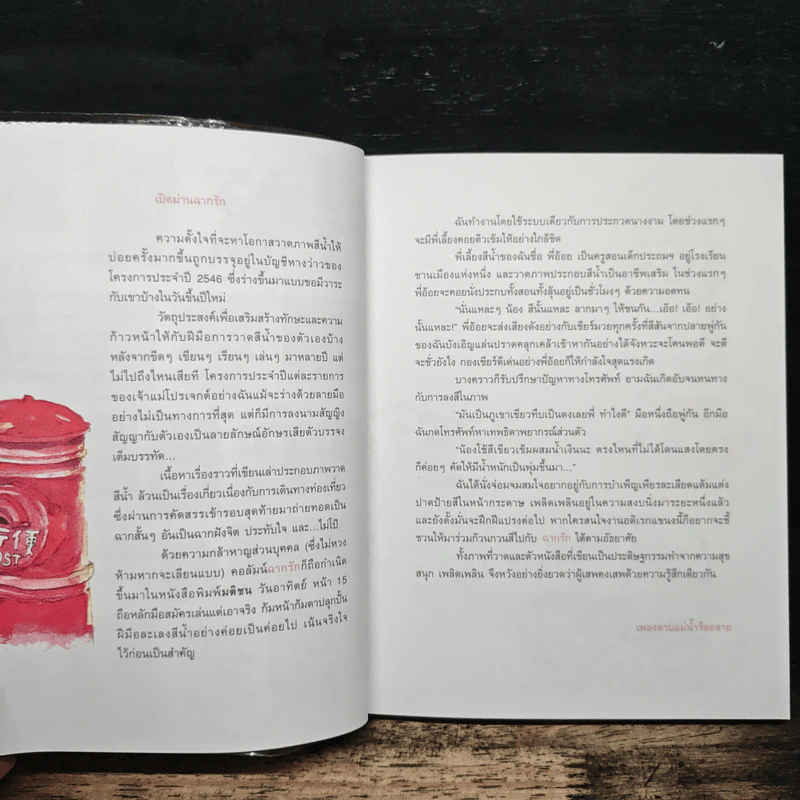 เปิดม่านฉากรัก
ความตั้งใจที่จะหาโอกาสวาดภาพสีน้ำให้
บ่อยครั้งมากขึ้นถูกบรรจุอยู่ในบัญชีหางว่าวของ
โครงการประจำปี 2546 ซึ่งร่างขึ้นมาแบบขอมีวาระ
กับเขาบ้างในวันขึ้นปีใหม่
วัตถุประสงค์เพื่อเสริมสร้างทักษะและความ
ก้าวหน้าให้กับฝีมือการวาดสีน้ำของตัวเองบ้าง
หลังจากขีดๆ เขียนๆ เรียนๆ เล่นๆ มาหลายปี แต่
ไม่ไปถึงไหนเสียที โครงการประจำปีแต่ละรายการ
ของเจ้าแม่โปรเจกต์อย่างฉันแม้จะร่างด้วยลายมือ
อย่างไม่เป็นทางการที่สุด แต่ก็มีการลงนามสัญญิง
สัญญากับตัวเองเป็นลายลักษณ์อักษรเสียตัวบรรจง
เต็มบรรทัด...
เนื้อหาเรื่องราวที่เขียนเล่าประกอบภาพวาด
สีน้ำ ล้วนเป็นเรื่องเกี่ยวเนื่องกับการเดินทางท่องเที่ยว
ซึ่งผ่านการคัดสรรเข้ารอบสุดท้ายมาถ่ายทอดเป็น
ฉากสั้นๆ อันเป็นฉากฝังจิต ประทับใจ และ...ไม่โป๊
ด้วยความกล้าหาญส่วนบุคคล (ซึ่งไม่หวง
ห้ามหากจะเลียนแบบ) คอลัมน์ฉากรักก็ถือกำเนิด
ขึ้นมาในหนังสือพิมพ์มติชน วันอาทิตย์ หน้า 15
ถือหลักมือสมัครเล่นแต่เอาจริง ก้มหน้าก้มตาปลุกปั้น
ฝีมือละเลงสีน้ำอย่างค่อยเป็นค่อยไป เน้นจริงใจ
ไว้ก่อนเป็นสำคัญ
便
OST
ฉันทำงานโดยใช้ระบบเดียวกับการประกวดนางงาม โดยช่วงแรกๆ
จะมีพี่เลี้ยงคอยติวเข้มให้อย่างใกล้ชิด
พี่เลี้ยงสีน้ำของฉันชื่อ พี่อ้อย เป็นครูสอนเด็กประถมฯ อยู่โรงเรียน
ชานเมืองแห่งหนึ่ง และวาดภาพประกอบสีน้ำเป็นอาชีพเสริม ในช่วงแรกๆ
พี่อ้อยจะคอยนั่งประกบทั้งสอนทั้งลุ้นอยู่เป็นชั่วโมงๆ ด้วยความอดทน
“นั่นแหละๆ น้อง สีนั้นแหละ ลากมาๆ ให้ชนกัน...เอ๊อ! เอ๊อ! อย่าง
นั้นแหละ!” พี่อ้อยจะส่งเสียงดังอย่างกับเชียร์มวยทุกครั้งที่สีสันจากปลายพู่กัน
ของฉันบังเอิญแล่นปราดคลุกเคล้าเข้าหากันอย่างได้จังหวะจะโคนพอดี จะดี
จะชั่วยังไง กองเชียร์ดีเด่นอย่างพี่อ้อยก็ให้กำลังใจสุดแรงเกิด
บางคราวก็รับปรึกษาปัญหาทางโทรศัพท์ ยามฉันเกิดอับจนหนทาง
กับการลงสีในภาพ
“มันเป็นภูเขาเขียวทึบเป็นดงเลยพี่ ทำไงดี” มือหนึ่งถือพู่กัน อีกมือ
ฉันกดโทรศัพท์หาเทพธิดาพยากรณ์ส่วนตัว
“น้องใช้สีเขียวเข้มผสมน้ำเงินนะ ตรงไหนที่ไม่ได้โดนแสงโดยตรง
ก็ค่อยๆ คัดให้มีน้ำหนักเป็นพุ่มขึ้นมา...”
ฉันได้นั่งจ่อมจมสมใจอยากอยู่กับการบำเพ็ญเพียรละเลียดแต้มแต่ง
ปาดป้ายสีในหน้ากระดาษ เพลิดเพลินอยู่ในความสงบนิ่งมาระยะหนึ่งแล้ว
และยังตั้งมั่นจะฝึกฝีแปรงต่อไป หากใครสนใจงานอดิเรกแขนงนี้ก็อยากจะชี้
ชวนให้มาร่วมก๊วนกวนสีไปกับ ฉากรัก ได้ตามอัธยาศัย
ทั้งภาพที่วาดและตัวหนังสือที่เขียนเป็นประดิษฐกรรมทำจากความสุข
สนุก เพลิดเพลิน จึงหวังอย่างยิ่งยวดว่าผู้เสพคงเสพด้วยความรู้สึกเดียวกัน
เพลงดาบแม่น้ำร้อยสาย